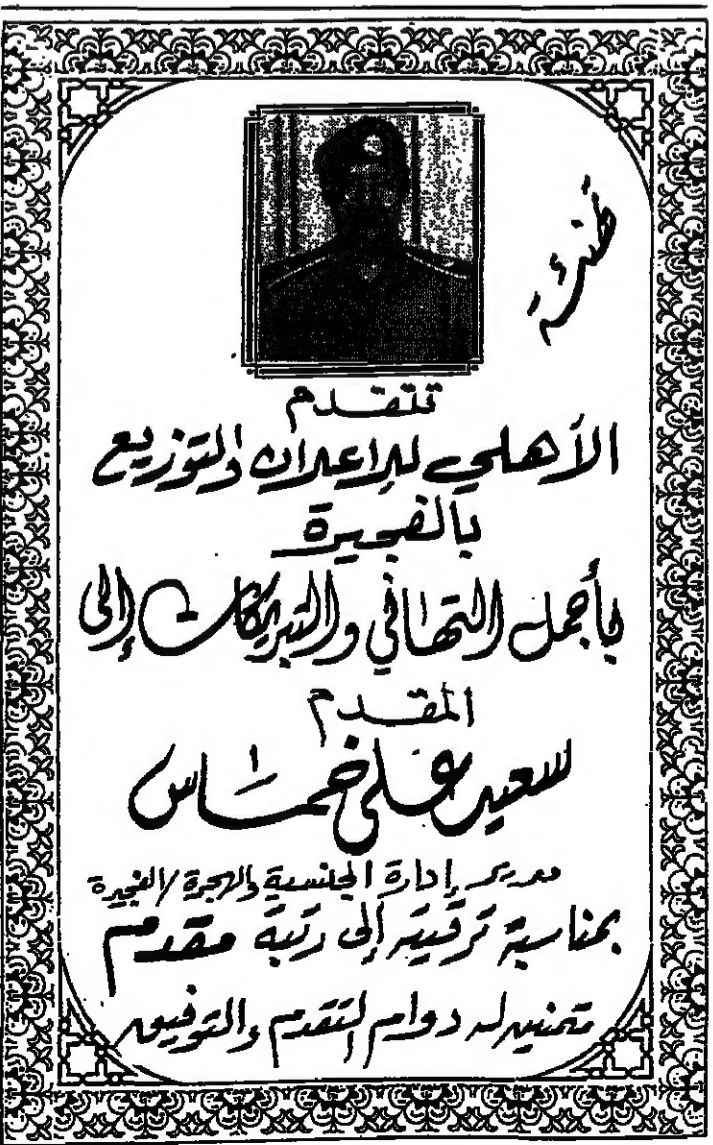 تهنئة
تتقدم
الأهلي للإعلان والتوزيع
بالفجيرة
بأجمل التهاني والتبريكات إلى
المقدم
سعيد علي خماس
مدير إدارة الجنسية والهجرة / الفجيرة
بمناسبة ترقيته إلى رتبة مقدم
متمنين له دوام التقدم والتوفيق